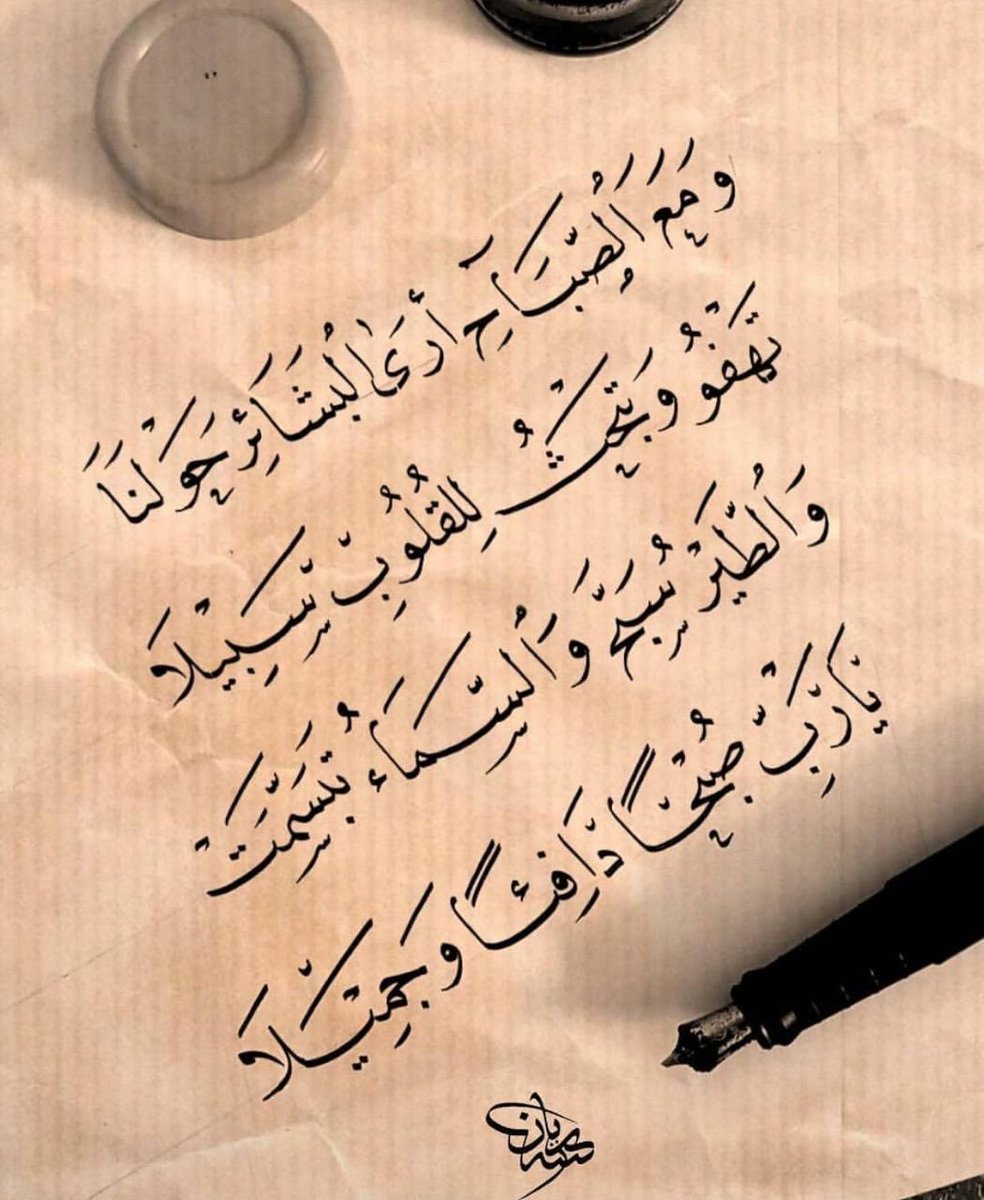 وَمَعَ الصَّبَاحِ أَرَى الْبَشَائِرَ حَوْلَنَا
تَهْفُو وَتَبْحَثُ لِلْقُلُوبِ سَبِيْلَا
وَالطَّيْرُ سَبَّحَ وَالسَّمَاءُ تَبَسَّمَتْ
يَارَبِّ صُبْحًا دَافِئًا وَجَمِيْلَا